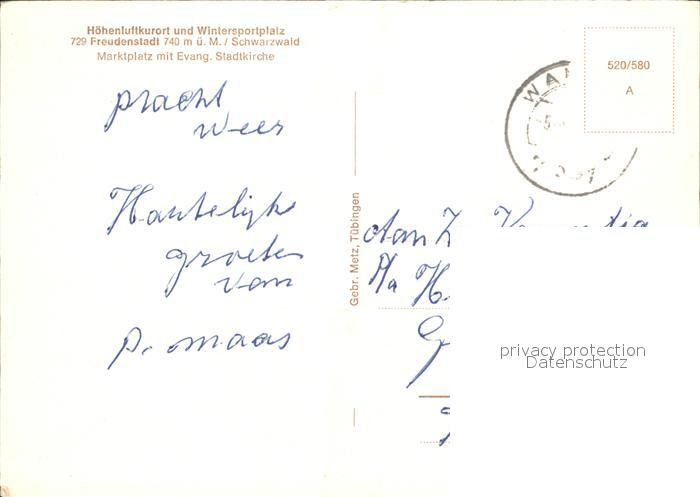 Höhenluftkurort und Wintersportplatz
729 Freudenstadt 740 m ü. M. / Schwarzwald
Marktplatz mit Evang. Stadtkirche
pracht
weer
Hartelijke
groeten
van
P. maas
Gebr. Metz, Tübingen
520/580
A
privacy protection
Datenschutz